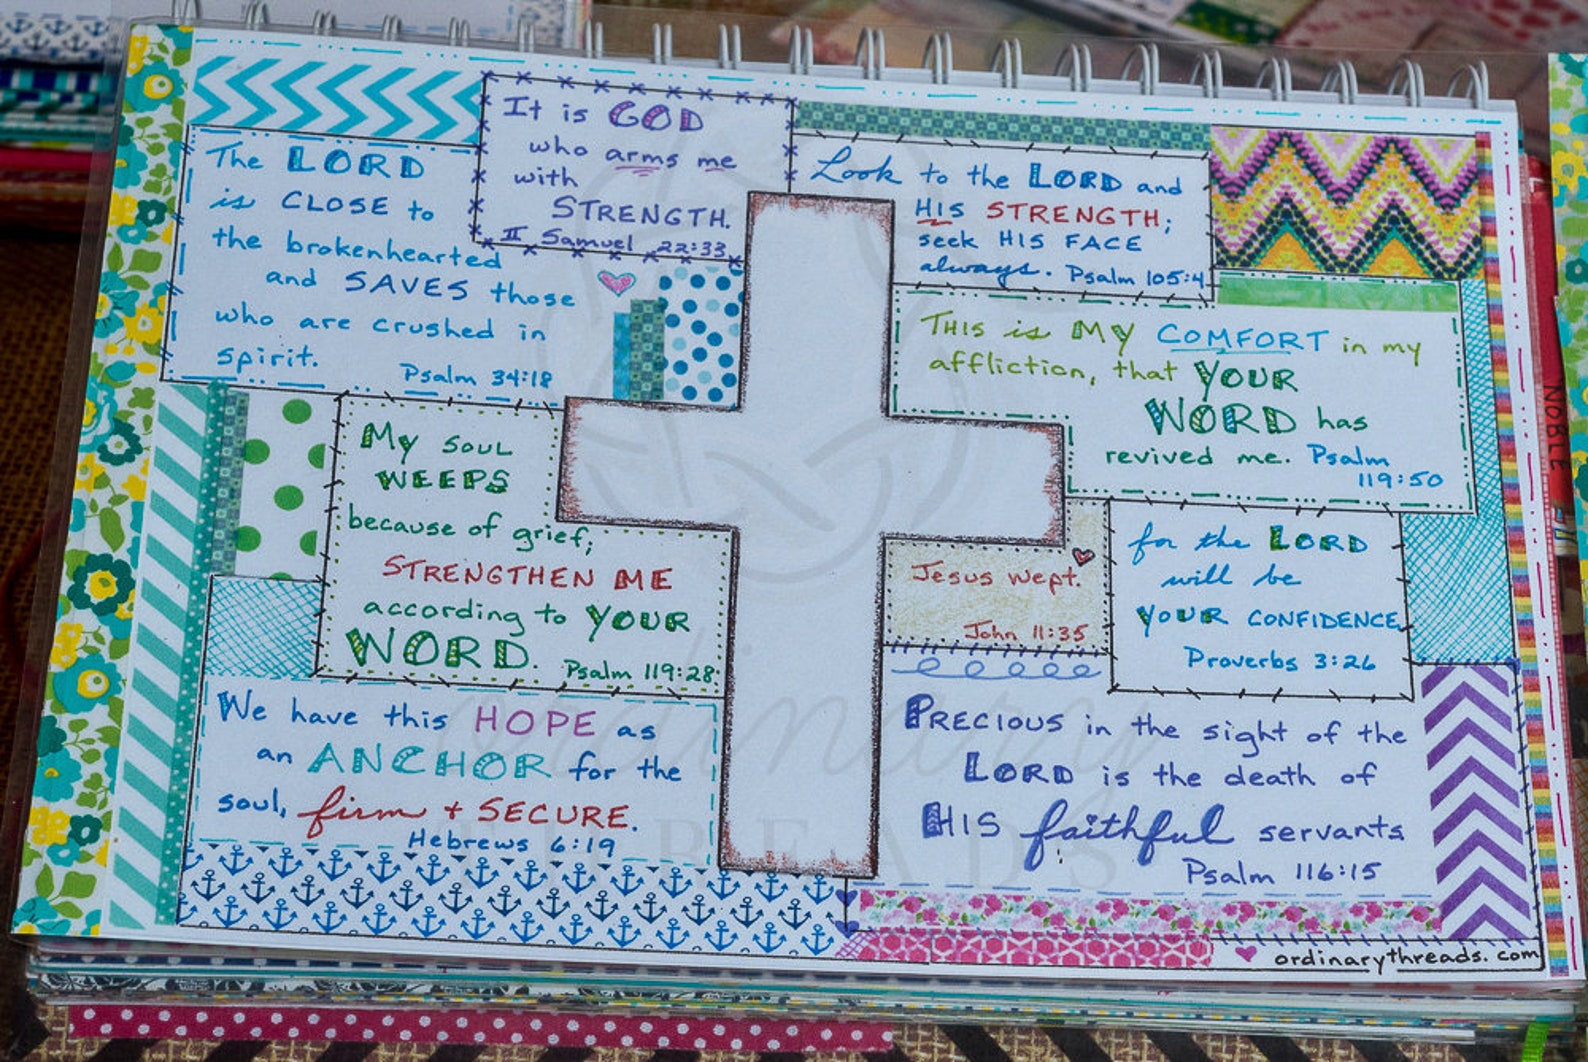 The LORD
is CLOSE to
the brokenhearted
and SAVES those
who are crushed in
spirit.
Psalm 34:18
It is GOD
who arms me
with
STRENGTH.
II Samuel 22:33
Look to the LORD and
HIS STRENGTH;
seek HIS FACE
always. Psalm 105:4
THIS is MY COMFORT in my
affliction, that YOUR
WORD has
revived me. Psalm
119:50
My SOUL
WEEPS
because of grief;
STRENGTHEN ME
according to YOUR
WORD. Psalm 119:28
Jesus wept.
John 11:35
for the LORD
will be
YOUR CONFIDENCE
Proverbs 3:26
We have this HOPE as
an ANCHOR for the
soul, firm + SECURE.
Hebrews 6:19
PRECIOUS in the sight of the
LORD is the death of
HIS faithful servants
Psalm 116:15
ordinarythreads.com
ordinary
THREADS
NOBLE